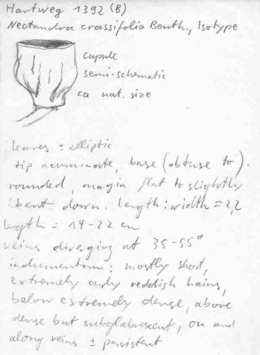 Hartweg 1392 (B)
Nectandra crassifolia Benth., Isotype
cupule
semi-schematic
ca nat. size
leaves ± elliptic
tip acuminate, base (obtuse to)
rounded, margin flat to slightly
bent down. length: width = 2,2
length = 14-22 cm
veins diverging at 35-55°
indumentum: mostly short,
extremely curly reddish hairs,
below extremely dense, above
dense but subglabrescent, on and
along veins ± persistent